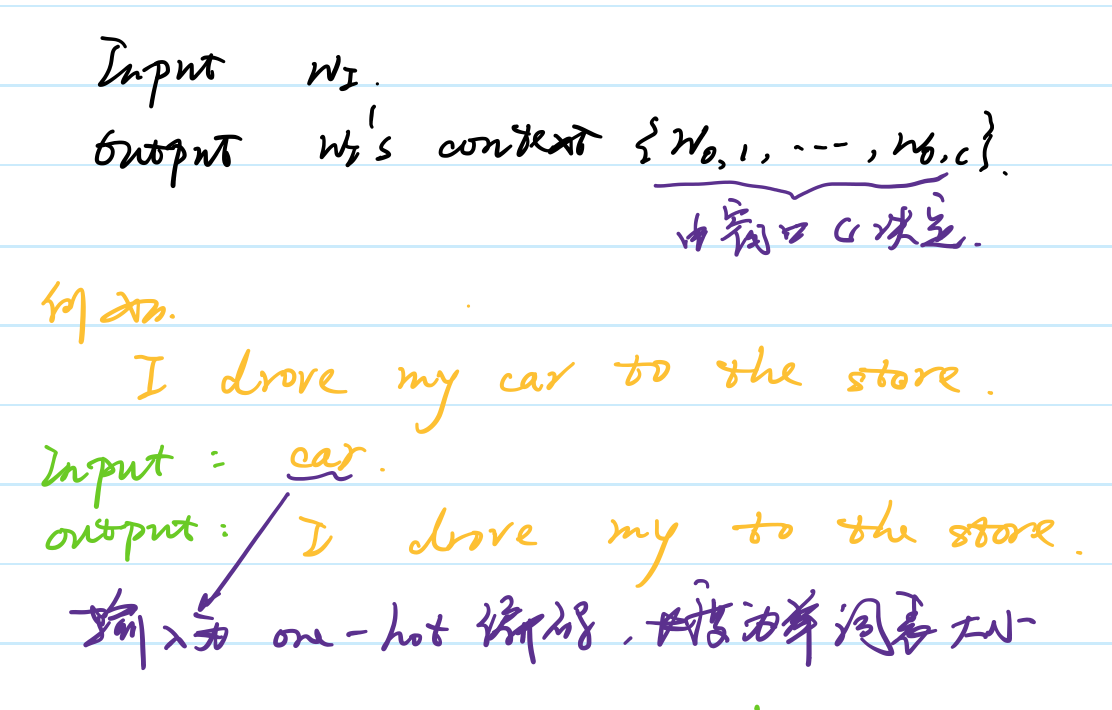 Input w_I.
Output w_I's context {w_{O,1}, ..., w_{O,C}}.
由窗口 C 决定.
例如.
I drove my car to the store.
Input: car.
output: I drove my to the store.
输入为 one-hot 编码, 长度为单词表大小